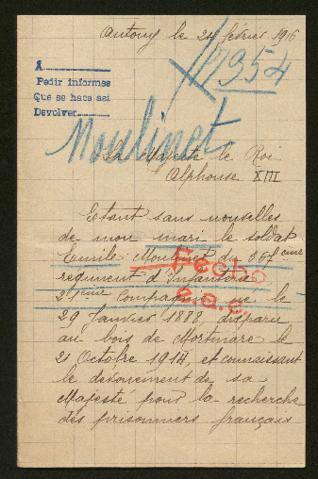 Antony le 24 février 1916
17954
A
Pedir informes
Que se haga así
Devolver
Moulinet
Sa Majesté le Roi
Alphonse XIII
Etant sans nouvelles
de mon mari le soldat
Emile Moulinet du 367eme
regiment d'Infanterie
21eme Compagnie né le
29 Janvier 1882, disparu
au bois de Mortmare le
21 Octobre 1914, et connaissant
le dévouement de sa
Majesté pour la recherche
des prisonniers français
Fecho